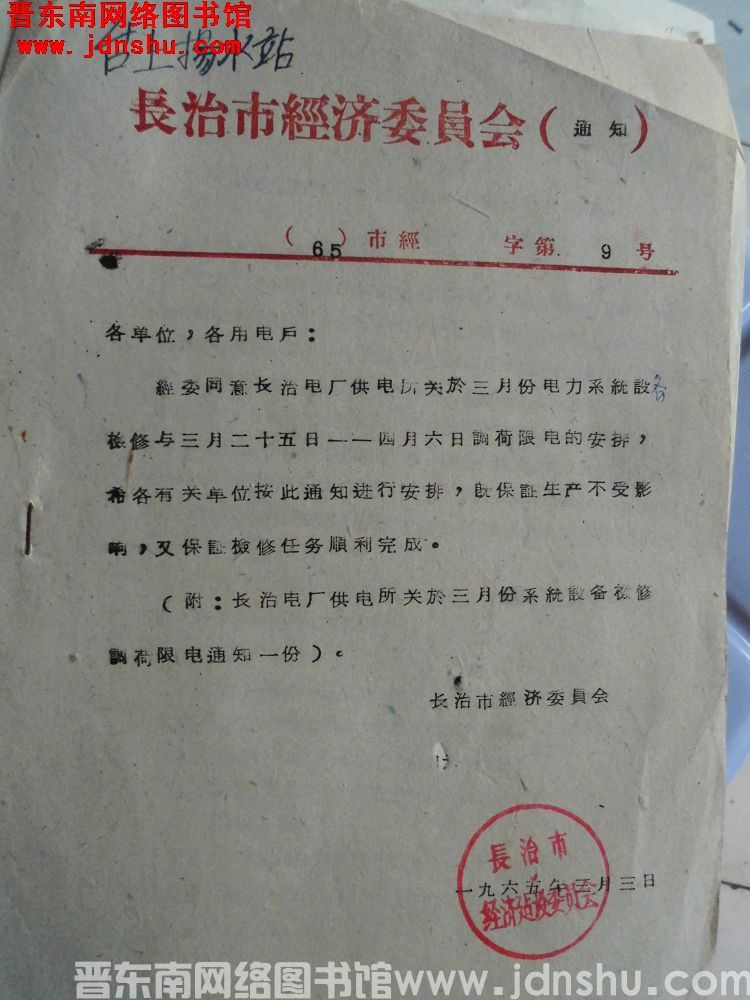 晋东南网络图书馆
www.jdnshu.com
上揚水站
長治市經济委員会(通知)
(65)市經 字第 9 号
各单位,各用电戶:
經委同意长治电厂供电所关於三月份电力系統設备
檢修与三月二十五日——四月六日調荷限电的安排,
希各有关单位按此通知进行安排,既保証生产不受影
响,又保証檢修任务順利完成。
(附:长治电厂供电所关於三月份系統設备檢修
調荷限电通知一份)。
长治市經济委員会
長治市
一九六五年三月三日
经济建設委员会
晋东南网络图书馆www.jdnshu.com